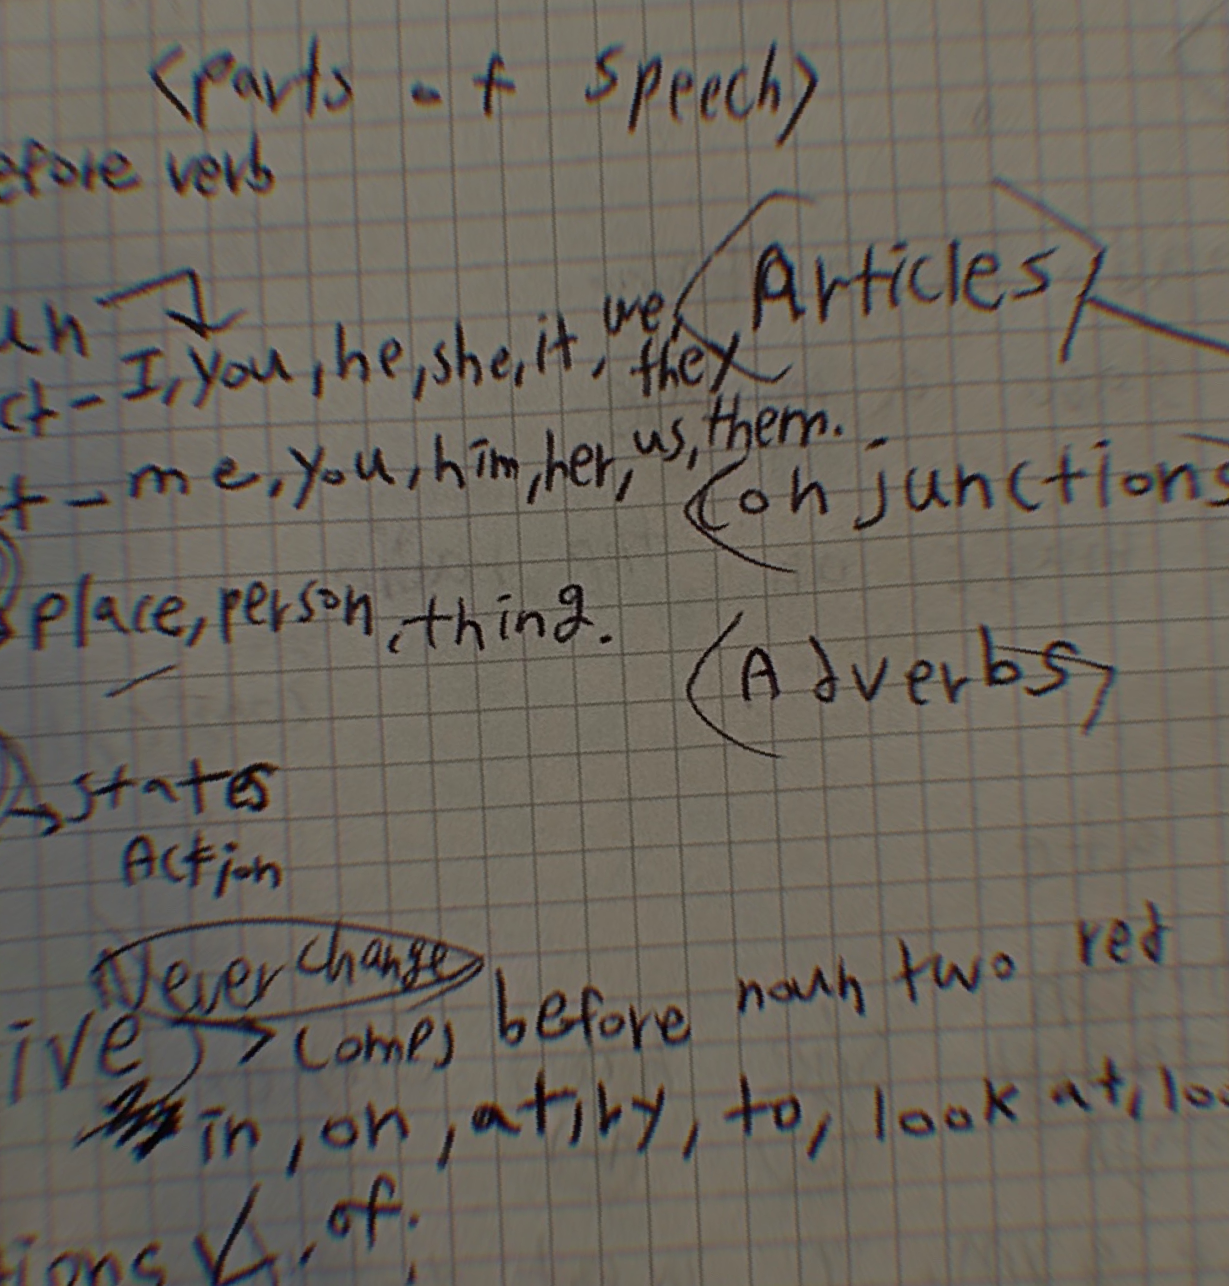 <parts of speech>
efore verb
un
we,
<Articles>
ct - I, you, he, she, it, they
t - me, you, him, her, us, them.
(conjunctions
place, person, thing.
(Adverbs>
states
Action
Never change
ive > comes before noun two red
in, on, at, by, to, look at, loo
ions , of.